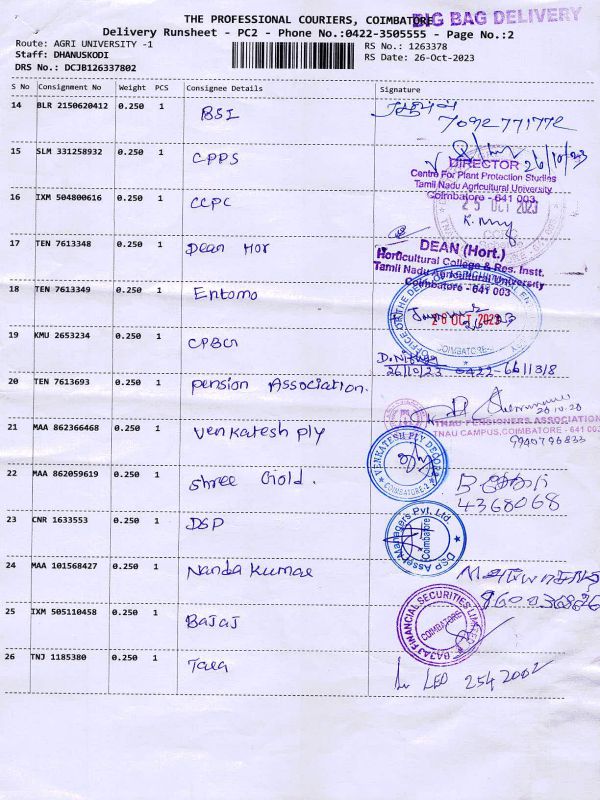 BIG BAG DELIVERY
THE PROFESSIONAL COURIERS, COIMBATORE
Delivery Runsheet - PC2 - Phone No.:0422-3505555 - Page No.:2
Route: AGRI UNIVERSITY -1
Staff: DHANUSKODI
DRS No.: DCJB126337802
RS No.: 1263378
RS Date: 26-Oct-2023
S No Consignment No Weight PCS Consignee Details Signature
14 BLR 2150620412 0.250 1 BSI
7092771772
15 SLM 331258932 0.250 1 CPPS
26/10/23
DIRECTOR
Centre For Plant Protection Studies
Tamil Nadu Agricultural University
Coimbatore - 641 003
16 IXM 504800616 0.250 1 CCPC
25 OCT 2023
17 TEN 7613348 0.250 1 Dean Hor
DEAN (Hort.)
Horticultural College & Res. Instt.
Tamil Nadu Agricultural University
Coimbatore - 641 003
18 TEN 7613349 0.250 1 Entomo
26 OCT 2023
COIMBATORE-
19 KMU 2653234 0.250 1 CPBG
26/10/23 0422-6611318
20 TEN 7613693 0.250 1 Pension Association.
TNAU PENSIONERS ASSOCIATION
TNAU CAMPUS,COIMBATORE - 641 003
9940796833
21 MAA 862366468 0.250 1 Venkatesh ply
VENKATESH PLY DECORS
COIMBATORE-2
22 MAA 862059619 0.250 1 Shree Gold.
4368068
23 CNR 1633553 0.250 1 DSP
DSP Asset Managers Pvt. Ltd
Coimbatore
24 MAA 101568427 0.250 1 Nanda Kumar
25 IXM 505110458 0.250 1 Bajaj
BAJAJ FINANCIAL SECURITIES LIMITED
COIMBATORE
26 TNJ 1185380 0.250 1 Tara
2542002